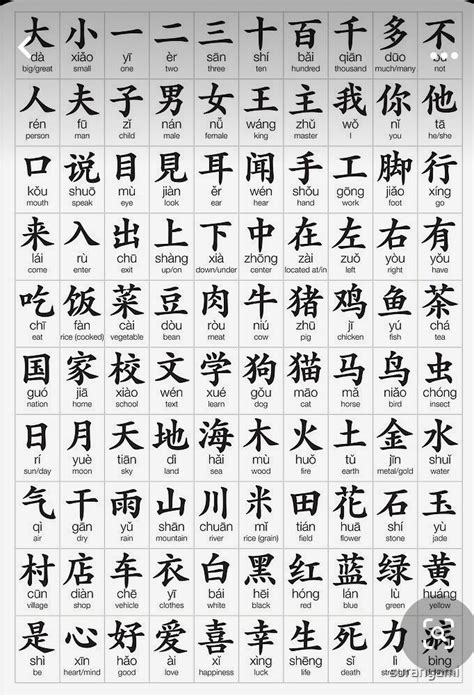 大 小 一 二 三 十 百 千 多 不
dà xiǎo yī èr sān shí bǎi qiān duō
big/great small one two three ten hundred thousand much/many not
人 夫 子 男 女 王 主 我 你 他
rén fū zǐ nán nǚ wáng zhǔ wǒ nǐ tā
person man child male female king master I you he/she
口 说 目 見 耳 闻 手 工 脚 行
kǒu shuō mù jiàn ěr wén shǒu gōng jiǎo xíng
mouth speak eye see ear hear hand work foot go
来 入 出 上 下 中 在 左 右 有
lái rù chū shàng xià zhōng zài zuǒ yòu yǒu
come enter exit up/on down/under center located at/in left right have
吃 饭 菜 豆 肉 牛 猪 鸡 鱼 茶
chī fàn cài dòu ròu niú zhū jī yú chá
eat rice (cooked) vegetable bean meat cow pig chicken fish tea
国 家 校 文 学 狗 猫 马 鸟 虫
guó jiā xiào wén xué gǒu māo mǎ niǎo chóng
nation home school text learn dog cat horse bird insect
日 月 天 地 海 木 火 土 金 水
rí yuè tiān dì hǎi mù huǒ tǔ jīn shuǐ
sun/day moon sky land sea wood fire earth metal/gold water
气 干 雨 山 川 米 田 花 石 玉
qì gān yǔ shān chuān mǐ tián huā shí yù
air dry rain mountain river rice (grain) field flower stone jade
村 店 车 衣 白 黑 红 蓝 绿 黄
cūn diàn chē yī bái hēi hóng lán lǜ huáng
village shop vehicle clothes white black red blue green yellow
是 心 好 爱 喜 幸 生 死 力 病
shì xīn hǎo ài xǐ xìng shēng sǐ lì bìng
be heart/mind good love happiness luck life death
surangami